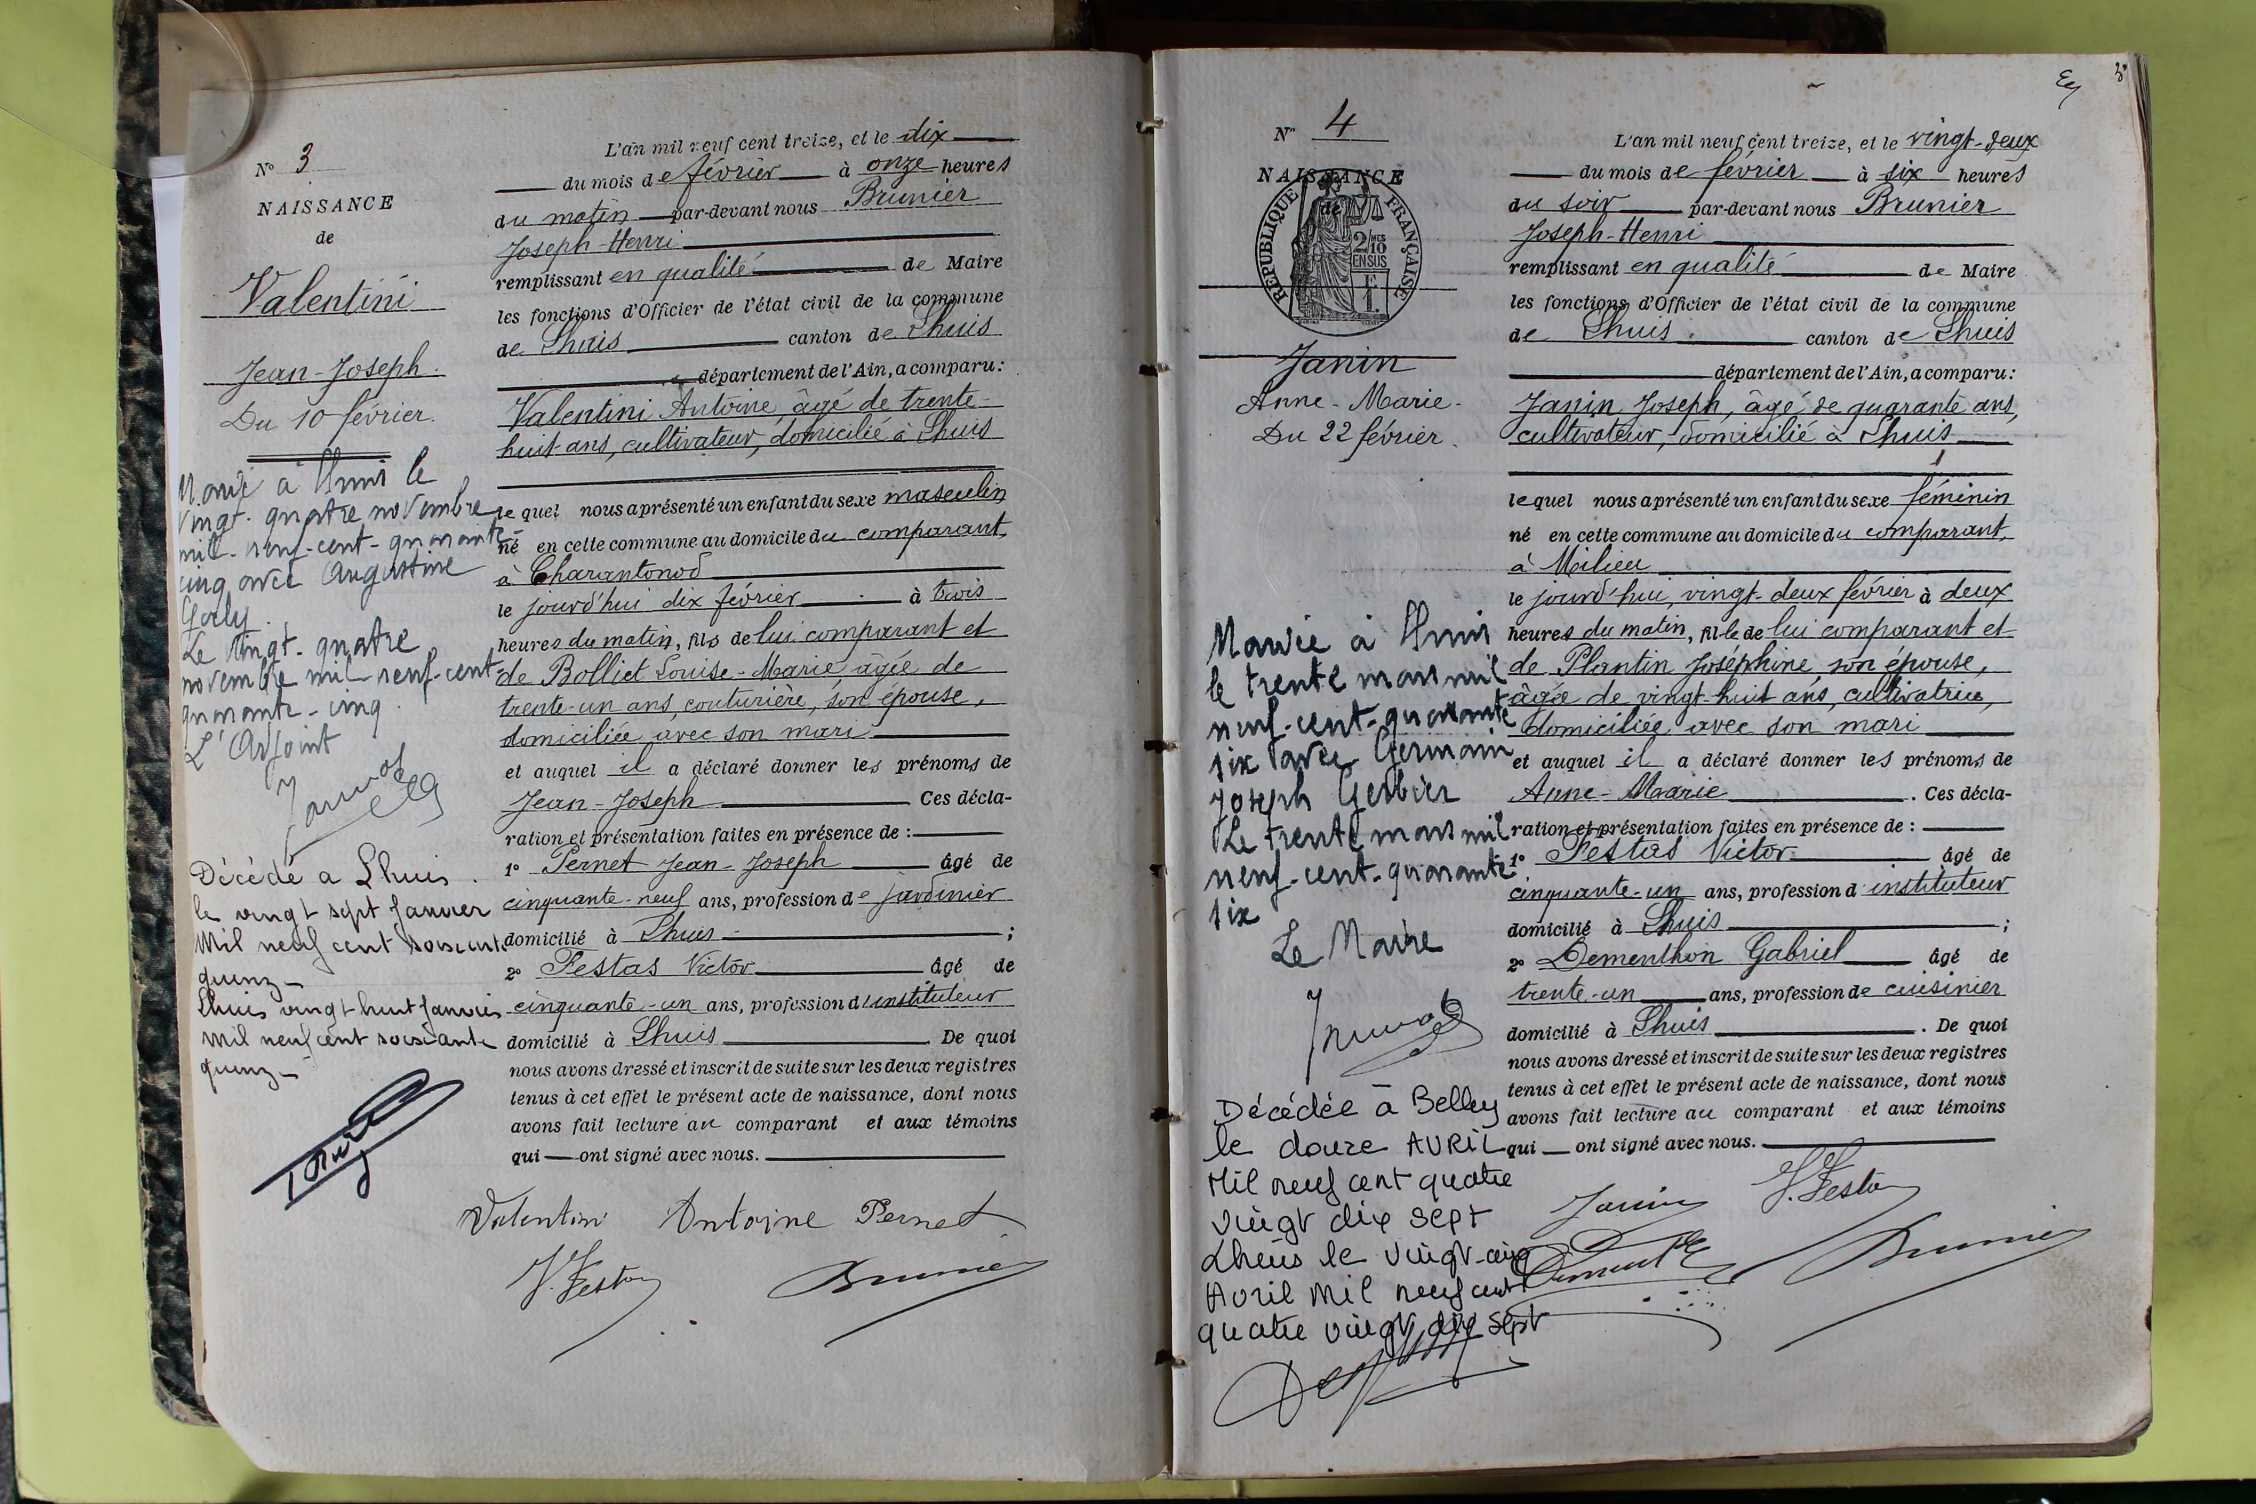 N° 3
NAISSANCE
de
Valentini
Jean-Joseph.
Du 10 février.
Marié à Lhuis le
vingt-quatre novembre
mil-neuf-cent-quarante-
cinq avec Augustine
Le vingt-quatre
novembre mil neuf-cent-
quarante-cinq.
L'Adjoint
Décédé a Lhuis.
le vingt sept Janvier
Mil neuf cent soixante
quinz
Lhuis vingt huit Janvier
mil neuf cent soixante
quinz
L'an mil neuf cent treize, et le dix
du mois de février à onze heures
du matin par-devant nous Brunier
Joseph-Henri
remplissant en qualité de Maire
les fonctions d'Officier de l'état civil de la commune
de Lhuis canton de Lhuis
département de l'Ain, a comparu:
Valentini Antoine, âgé de trente-
huit ans, cultivateur, domicilié à Lhuis
lequel nous a présenté un enfant du sexe masculin
né en cette commune au domicile du comparant,
à Charantonod
le jourd'hui dix février à trois
heures du matin, fils de lui comparant et
de Bolliet Louise-Marie, âgée de
trente-un ans, couturière, son épouse,
domiciliée avec son mari
et auquel il a déclaré donner les prénoms de
Jean-Joseph Ces décla-
ration et présentation faites en présence de :
1° Pernet Jean-Joseph âgé de
cinquante-neuf ans, profession de jardinier
domicilié à Lhuis ;
2° Festas Victor âgé de
cinquante-un ans, profession d'instituteur
domicilié à Lhuis De quoi
nous avons dressé et inscrit de suite sur les deux registres
tenus à cet effet le présent acte de naissance, dont nous
avons fait lecture au comparant et aux témoins
qui ont signé avec nous.
Valentini Antoine Pernet
V. Festas Brunier
3
N° 4
NAISSANCE
de
RÉPUBLIQUE FRANÇAISE
2/10 MES
EN SUS
1 F.
Janin
Anne-Marie-
Du 22 février.
Mariée à Lhuis
le trente mars mil
neuf-cent-quarante
six avec Germain
Joseph Gerbier
Le trente mars mil
neuf-cent-quarante
six
Le Maire
Décédée à Belley
le douze AVRIL
Mil neuf cent quatre
vingt dix sept
Lhuis le vingt-cinq
Avril Mil neuf cent
quatre vingt dix sept
L'an mil neuf cent treize, et le vingt-deux
du mois de février à six heures
du soir par-devant nous Brunier
Joseph-Henri
remplissant en qualité de Maire
les fonctions d'Officier de l'état civil de la commune
de Lhuis. canton de Lhuis
département de l'Ain, a comparu:
Janin Joseph, âgé de quarante ans,
cultivateur, domicilié à Lhuis
lequel nous a présenté un enfant du sexe féminin
né en cette commune au domicile du comparant,
à Milieu
le jourd'hui, vingt-deux février à deux
heures du matin, fille de lui comparant et
de Plantin Joséphine, son épouse,
âgée de vingt-huit ans, cultivatrice,
domiciliée avec son mari
et auquel il a déclaré donner les prénoms de
Anne-Marie . Ces décla-
ration et présentation faites en présence de :
1° Festas Victor âgé de
cinquante-un ans, profession d'instituteur
domicilié à Lhuis ;
2° Dementhon Gabriel âgé de
trente-un ans, profession de cuisinier
domicilié à Lhuis . De quoi
nous avons dressé et inscrit de suite sur les deux registres
tenus à cet effet le présent acte de naissance, dont nous
avons fait lecture au comparant et aux témoins
qui ont signé avec nous.
Janin V. Festas
Brunier